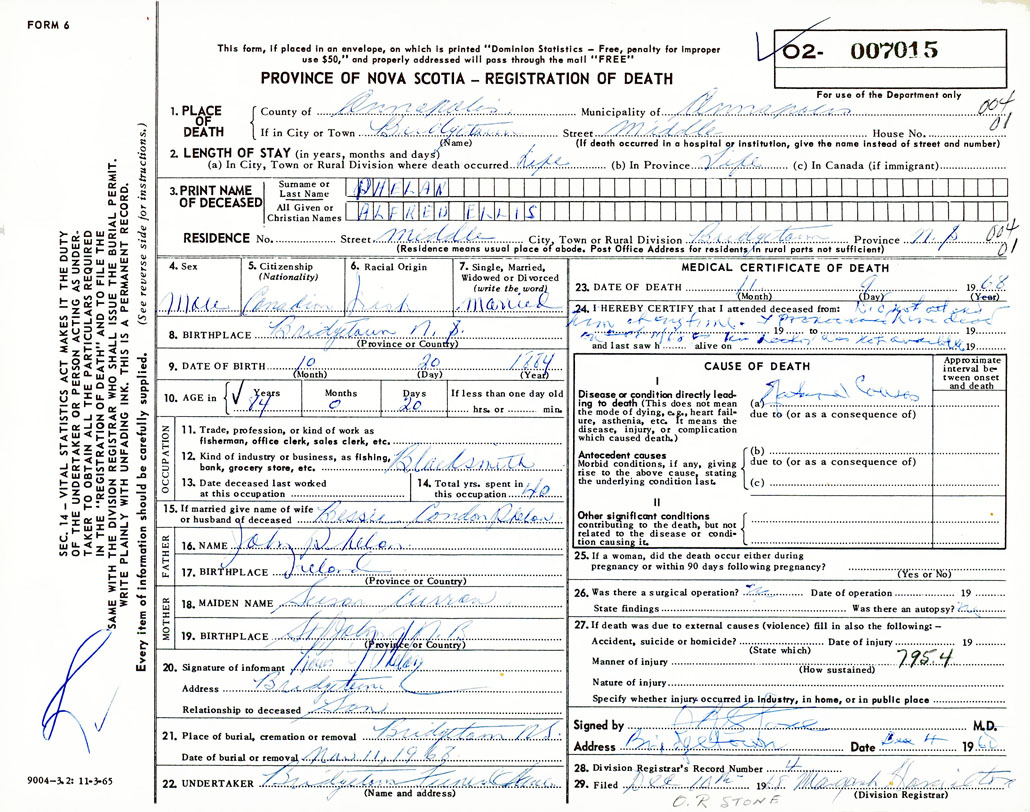 FORM 6
This form, if placed in an envelope, on which is printed "Dominion Statistics – Free, penalty for improper
use $50," and properly addressed will pass through the mail "FREE"
PROVINCE OF NOVA SCOTIA – REGISTRATION OF DEATH
O2- 007015
For use of the Department only
004
01
1. PLACE OF DEATH
County of Annapolis Municipality of Annapolis
If in City or Town Bridgetown Street Middle House No.
(Name) (If death occurred in a hospital or institution, give the name instead of street and number)
2. LENGTH OF STAY (in years, months and days)
(a) In City, Town or Rural Division where death occurred Life (b) In Province Life (c) In Canada (if immigrant)
3. PRINT NAME OF DECEASED
Surname or Last Name PHELAN
All Given or Christian Names ALFRED ELLIS
RESIDENCE No. Street Middle City, Town or Rural Division Bridgetown Province N.S
004
01
(Residence means usual place of abode. Post Office Address for residents in rural parts not sufficient)
4. Sex Male
5. Citizenship (Nationality) Canadian
6. Racial Origin Irish
7. Single, Married, Widowed or Divorced (write the word) Married
8. BIRTHPLACE Bridgetown N.S.
(Province or Country)
9. DATE OF BIRTH 10 20 1884
(Month) (Day) (Year)
10. AGE in Years 84 Months 0 Days 20 If less than one day old hrs. or min.
OCCUPATION
11. Trade, profession, or kind of work as
fisherman, office clerk, sales clerk, etc.
12. Kind of industry or business, as fishing,
bank, grocery store, etc. Blacksmith
13. Date deceased last worked
at this occupation
14. Total yrs. spent in
this occupation 40
15. If married give name of wife
or husband of deceased Bessie Condon Phelan
FATHER
16. NAME John Phelan
17. BIRTHPLACE Ireland
(Province or Country)
MOTHER
18. MAIDEN NAME Susan Curran
19. BIRTHPLACE St John N.B
(Province or Country)
20. Signature of informant Phelan
Address Bridgetown
Relationship to deceased Son
21. Place of burial, cremation or removal Bridgetown N.S.
Date of burial or removal Nov. 11, 1968
22. UNDERTAKER Bridgetown Funeral Home
(Name and address)
MEDICAL CERTIFICATE OF DEATH
23. DATE OF DEATH 11 9 1968
(Month) (Day) (Year)
24. I HEREBY CERTIFY that I attended deceased from: Did not attend
him anytime. I pronounced him dead
19 to 19
and last saw h alive on 19
CAUSE OF DEATH
Approximate interval between onset and death
I
Disease or condition directly leading
to death (This does not mean
the mode of dying, e.g., heart failure,
asthenia, etc. It means the
disease, injury, or complication
which caused death.)
(a) Natural Causes
due to (or as a consequence of)
Antecedent causes
Morbid conditions, if any, giving
rise to the above cause, stating
the underlying condition last.
(b)
due to (or as a consequence of)
(c)
II
Other significant conditions
contributing to the death, but not
related to the disease or condition
causing it.
25. If a woman, did the death occur either during
pregnancy or within 90 days following pregnancy?
(Yes or No)
26. Was there a surgical operation? No Date of operation 19
State findings Was there an autopsy? No
27. If death was due to external causes (violence) fill in also the following: –
Accident, suicide or homicide? Date of injury 19
(State which)
Manner of injury 795.4
(How sustained)
Nature of injury
Specify whether injury occurred in Industry, in home, or in public place
Signed by M.D.
Address Bridgetown Date Dec 4 1968
28. Division Registrar's Record Number 4
29. Filed Dec 1968
(Division Registrar)
O.R STONE
SEC. 14 – VITAL STATISTICS ACT MAKES IT THE DUTY
OF THE UNDERTAKER OR PERSON ACTING AS UNDERTAKER
TO OBTAIN ALL THE PARTICULARS REQUIRED
IN THE "REGISTRATION OF DEATH" AND TO FILE THE
SAME WITH THE DIVISION REGISTRAR WHO SHALL ISSUE THE BURIAL PERMIT.
WRITE PLAINLY WITH UNFADING INK. THIS IS A PERMANENT RECORD.
Every item of information should be carefully supplied. (See reverse side for instructions.)
9004-3.2: 11-3-65